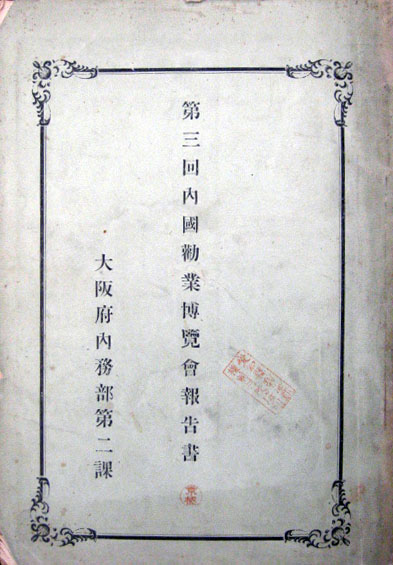 第三回內國勸業博覽會報告書
大阪府內務部第二課